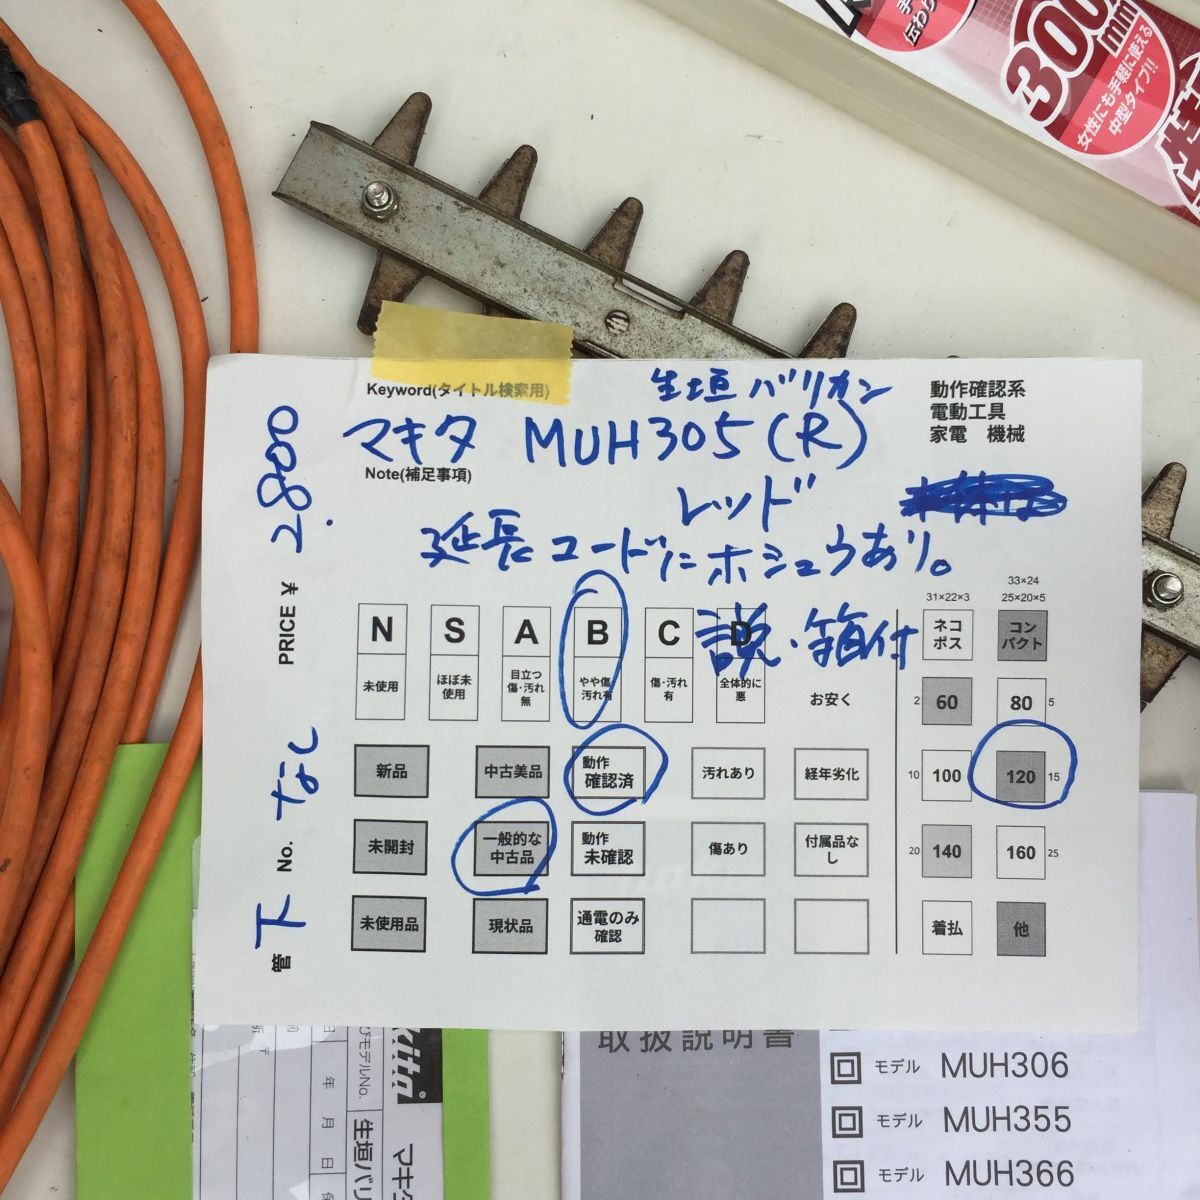 300mm
女性にも手軽に使える
中型タイプ!!
Keyword(タイトル検索用)
生垣 バリカン
マキタ MUH305(R)
動作確認系
電動工具
家電 機械
Note(補足事項)
レッド
延長コードにホシュウあり。
説・箱付
PRICE ¥ 2.800
No. なし
管 下
N S A B C D
未使用
ほぼ未使用
目立つ傷・汚れ無
やや傷汚れ有
傷・汚れ有
全体的に悪
お安く
新品 中古美品 動作確認済 汚れあり 経年劣化
未開封 一般的な中古品 動作未確認 傷あり 付属品なし
未使用品 現状品 通電のみ確認
33×24
31×22×3 25×20×5
ネコポス コンパクト
2 60 80 5
10 100 120 15
20 140 160 25
着払 他
取扱説明書
モデル MUH306
モデル MUH355
モデル MUH366
モデルNo.
年 月 日
生垣バリ
マキタ